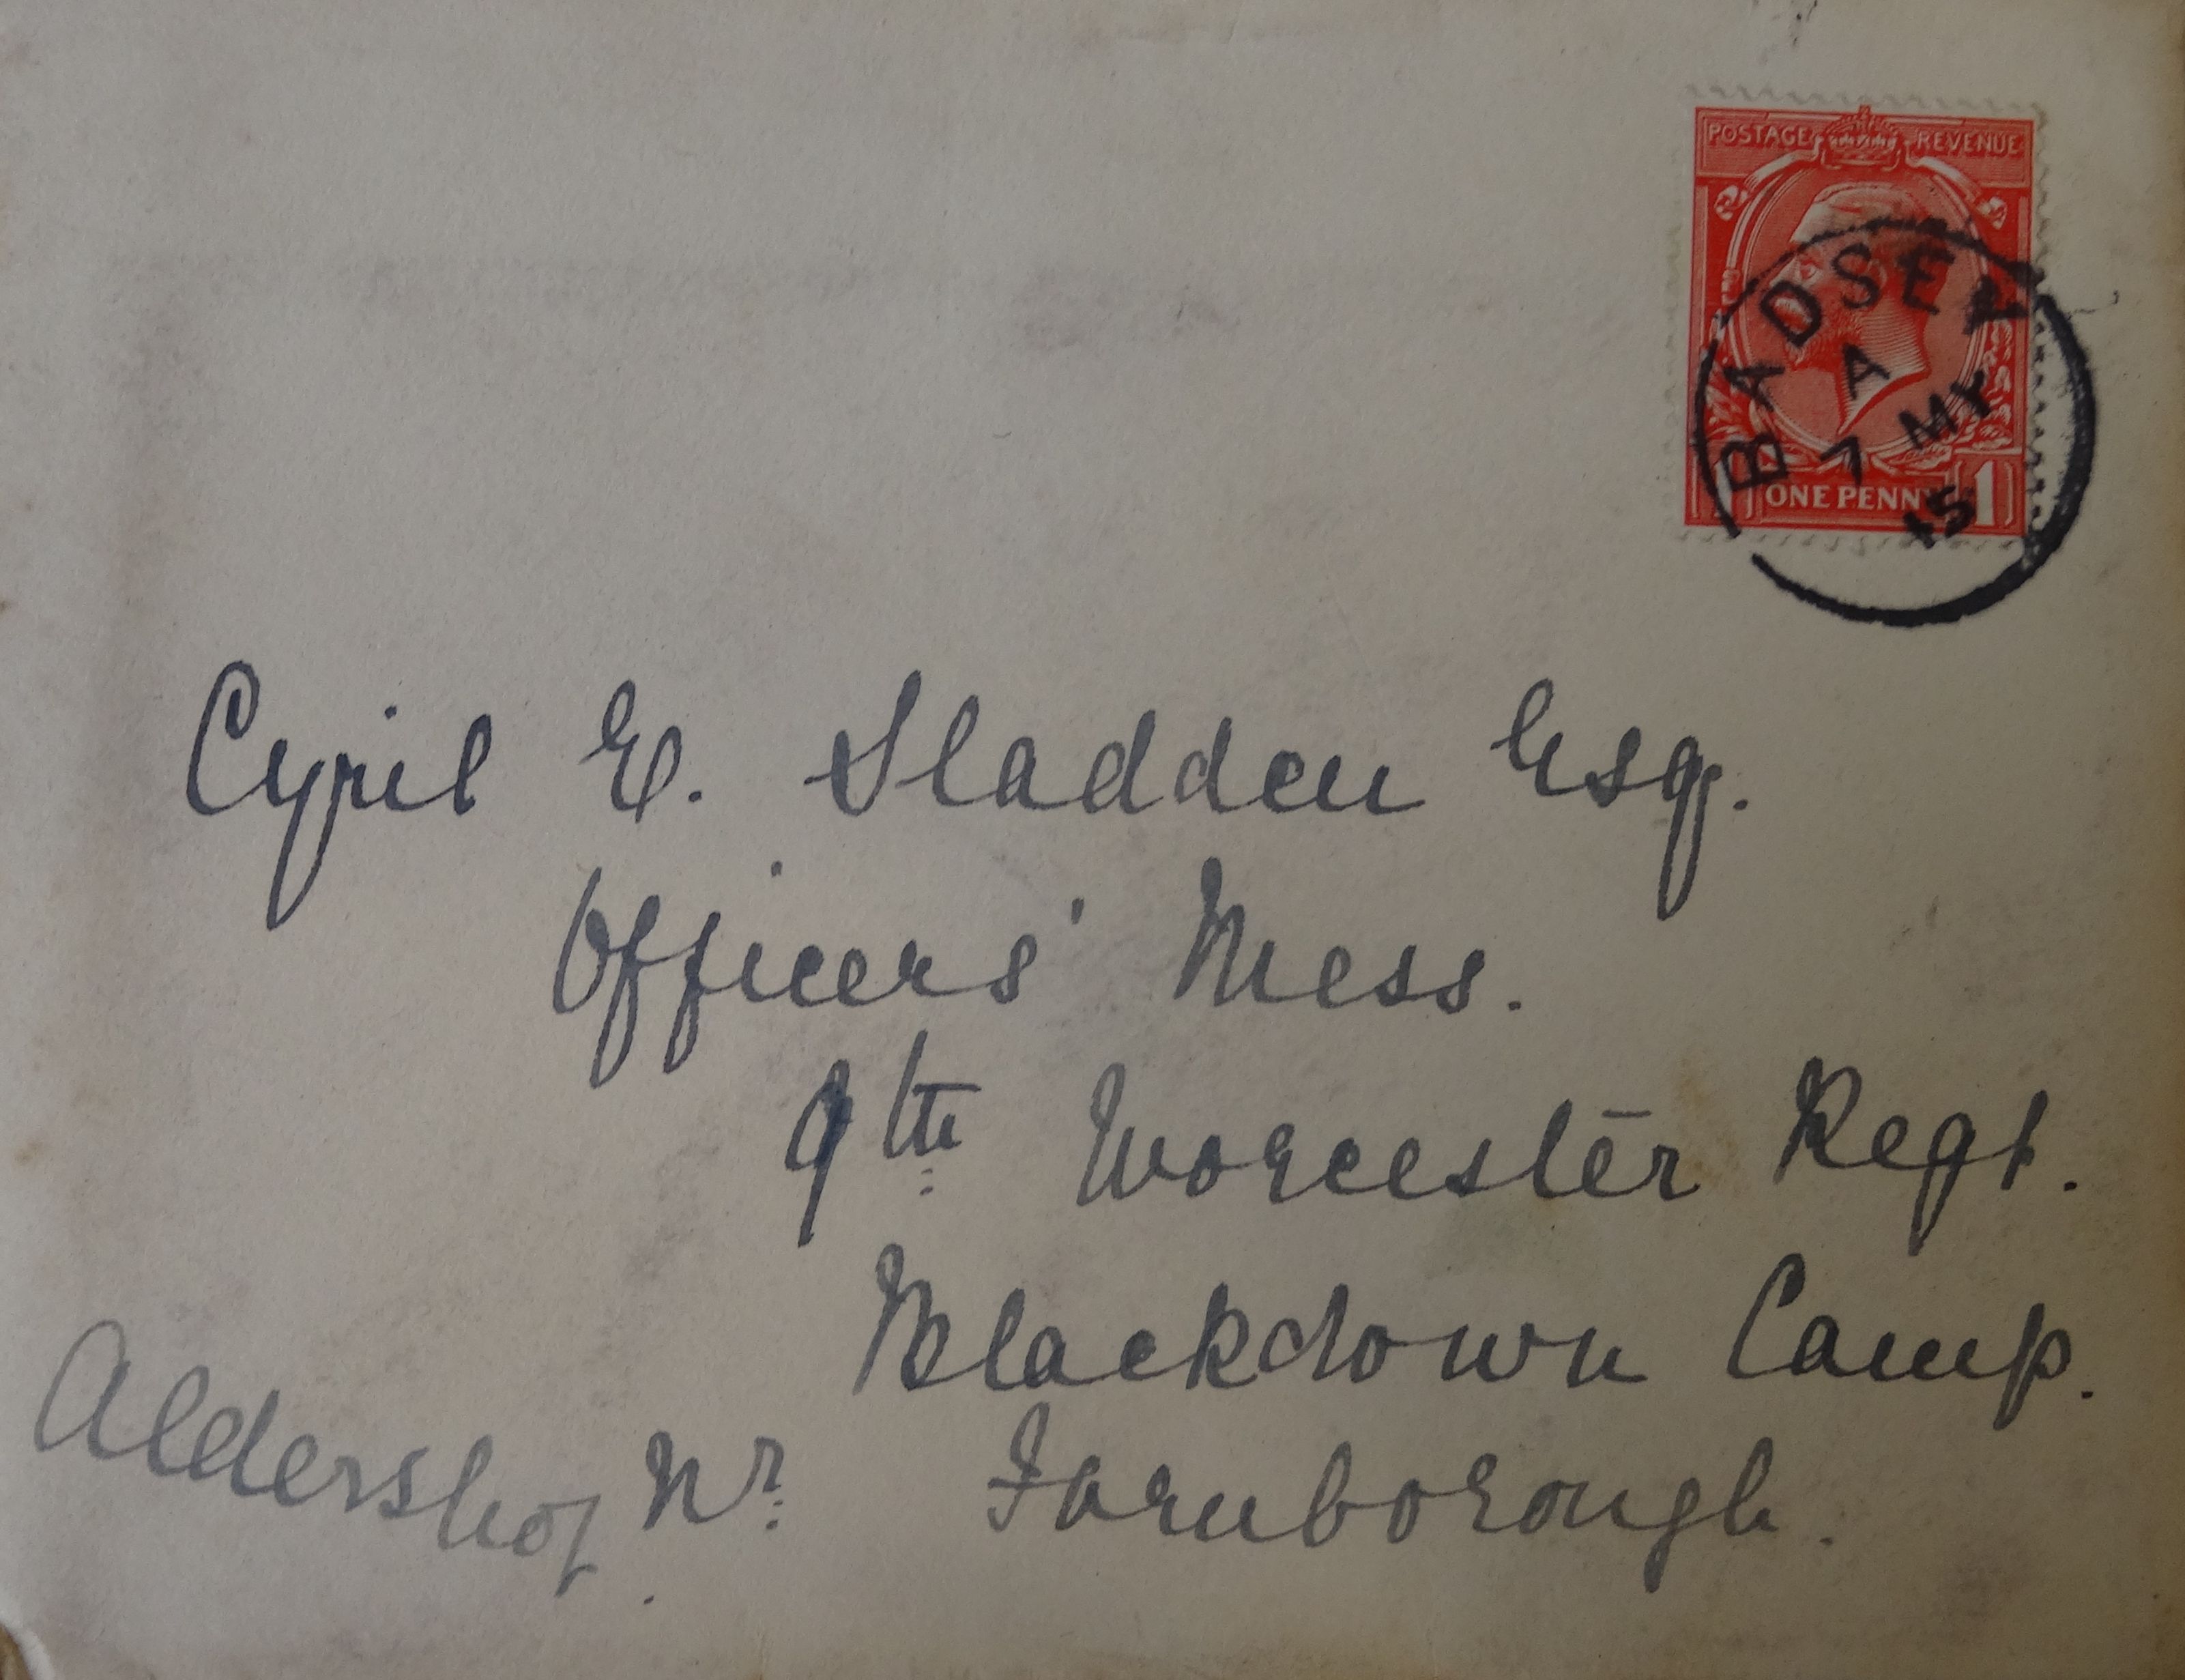 POSTAGE REVENUE
BADSEY
A
7 MY
15
ONE PENNY 1
Cyril E. Sladden Esq.
Officers' Mess.
9th Worcester Regt.
Blackdown Camp.
Nr Farnborough.
Aldershot.